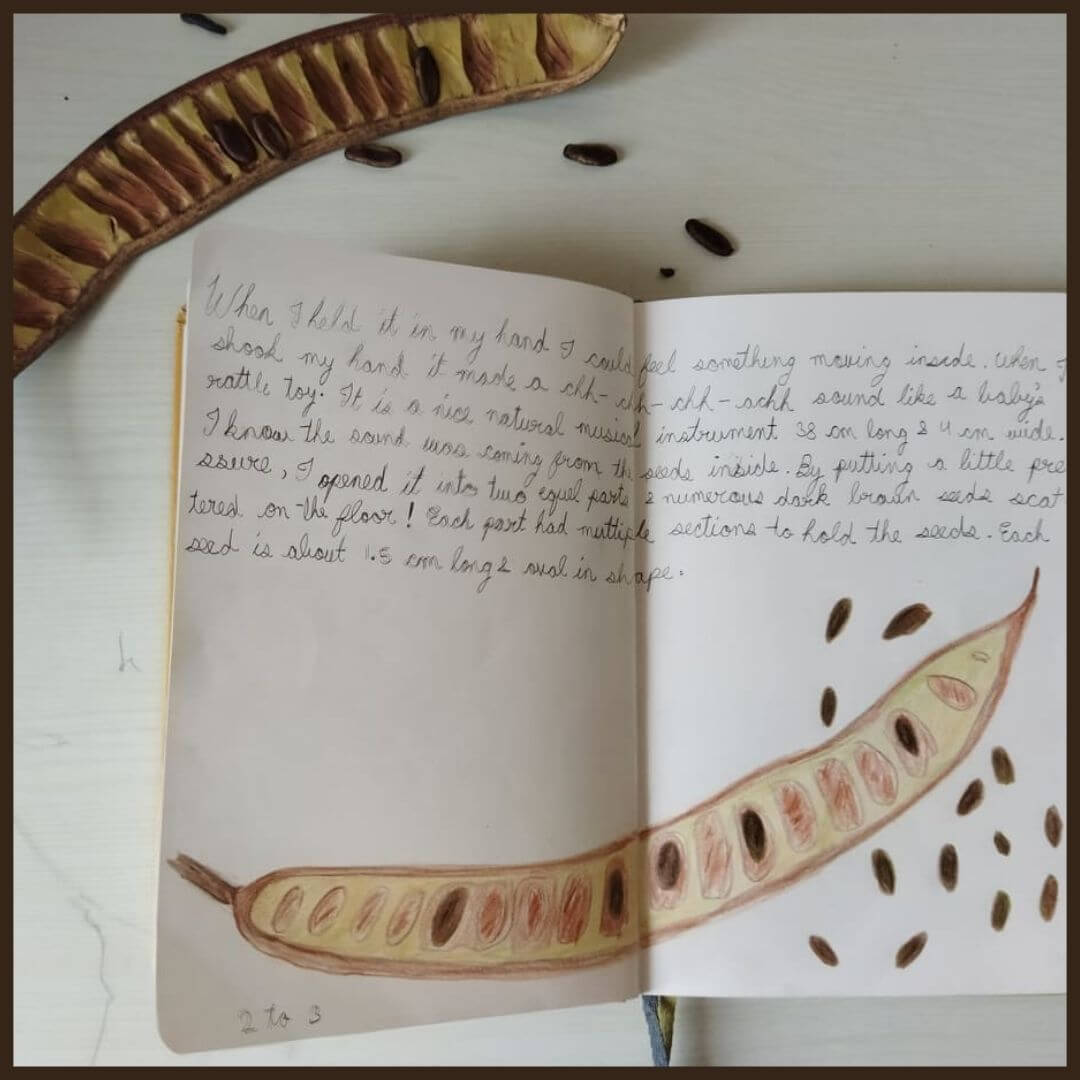 When I held it in my hand I could feel something moving inside. When I
shook my hand it made a chh-chh-chh-schh sound like a baby's
rattle toy. It is a nice natural musical instrument 38 cm long & 4 cm wide.
I know the sound was coming from the seeds inside. By putting a little pre
ssure, I opened it into two equal parts & numerous dark brown seeds scat
tered on the floor! Each part had multiple sections to hold the seeds. Each
seed is about 1.5 cm long & oval in shape.
2 to 3